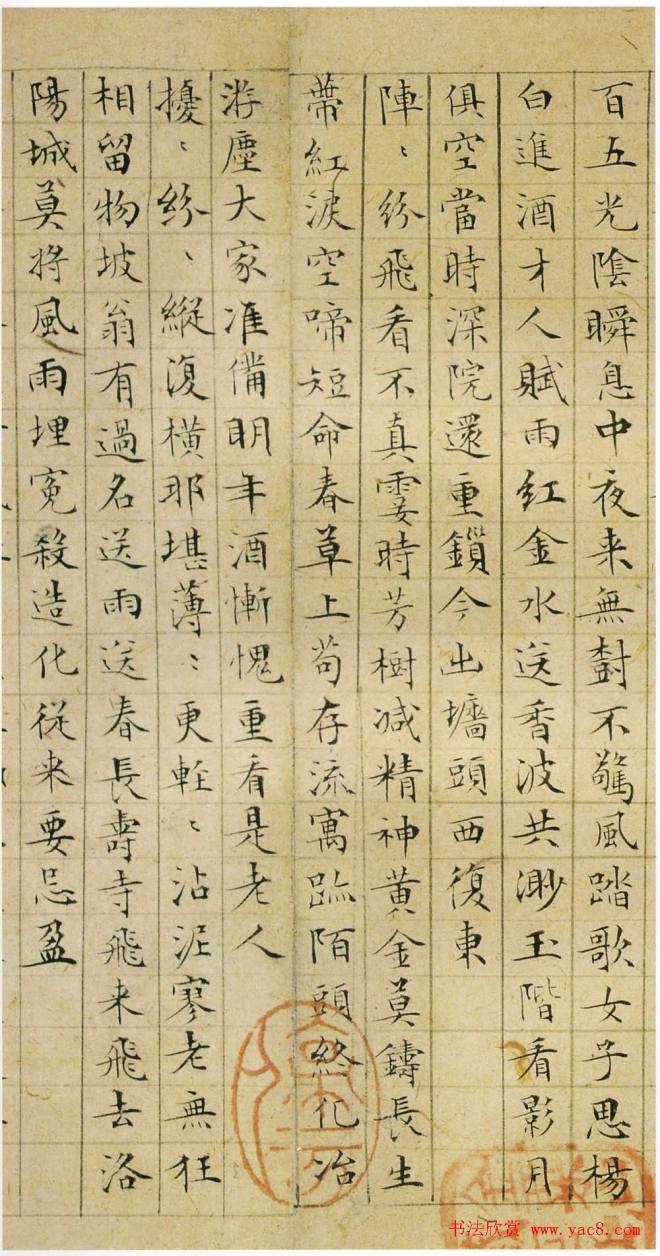 百五光陰瞬息中夜来無樹不驚風踏歌女子思楊
白進酒才人賦雨紅金水送香波共渺玉階看影月
俱空當時深院還重鎖今出墻頭西復東
陣〻紛飛看不真霎時芳樹減精神黄金莫鑄長生
蒂紅淚空啼短命春草上苟存流寓跡陌頭終化冶
游塵大家准備明年酒慚愧重看是老人
擾〻紛〻縱復横那堪薄〻更輕〻沾泥寥老無狂
相留物坡翁有過名送雨送春長壽寺飛来飛去洛
陽城莫將風雨埋冤殺造化從来要忌盈
书法欣赏 www.yac8.com